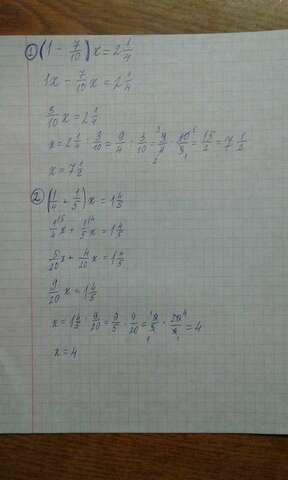 1) (1 - 7/10) x = 2 1/4
1x - 7/10 x = 2 1/4
3/10 x = 2 1/4
x = 2 1/4 : 3/10 = 9/4 · 3/10 = 9/4 · 10/3 = 15/2 = 7 1/2
x = 7 1/2
2) (1/4 + 1/5) x = 1 4/5
1/4 x + 1/5 x = 1 4/5
5/20 x + 4/20 x = 1 4/5
9/20 x = 1 4/5
x = 1 4/5 : 9/20 = 9/5 : 9/20 = 9/5 · 20/9 = 4
x = 4